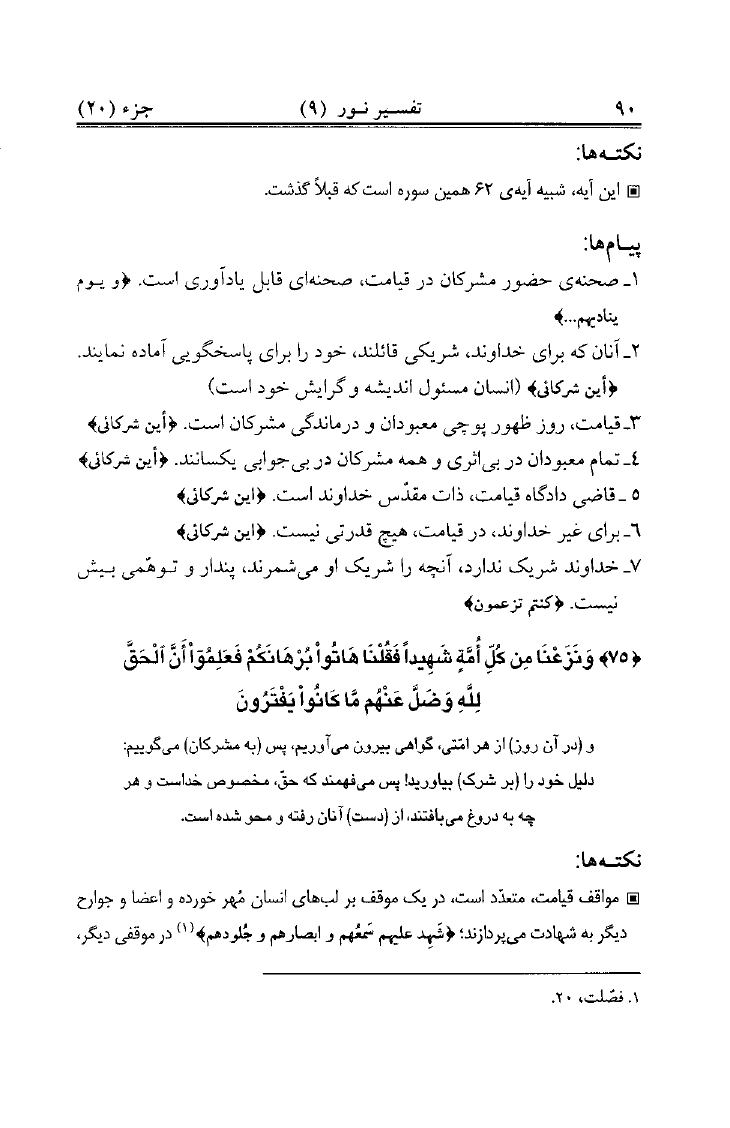 ۹۰ تفسیر نـور (۹) جزء (۲۰)
نکتـه‌ها:
▣ این آیه، شبیه آیه‌ی ۶۲ همین سوره است که قبلاً گذشت.
پیـام‌ها:
۱ـ صحنه‌ی حضور مشرکان در قیامت، صحنه‌ای قابل یادآوری است. ﴿و یـوم
ینادیهم...﴾
۲ـ آنان که برای خداوند، شریکی قائلند، خود را برای پاسخگویی آماده نمایند.
﴿أین شرکائی﴾ (انسان مسئول اندیشه و گرایش خود است)
۳ـ قیامت، روز ظهور پوچی معبودان و درماندگی مشرکان است. ﴿أین شرکائی﴾
٤ـ تمام معبودان در بی‌اثری و همه مشرکان در بی‌جوابی یکسانند. ﴿أین شرکائی﴾
۵ ـ قاضی دادگاه قیامت، ذات مقدّس خداوند است. ﴿این شرکائی﴾
٦ـ برای غیر خداوند، در قیامت، هیچ قدرتی نیست. ﴿این شرکائی﴾
۷ـ خداوند شریک ندارد، آنچه را شریک او می‌شمرند، پندار و تـوهّمی بـیش
نیست. ﴿کنتم تزعمون﴾
﴿۷۵﴾ وَنَزَعْنَا مِن كُلِّ أُمَّةٍ شَهِيداً فَقُلْنَا هَاتُواْ بُرْهَانَكُمْ فَعَلِمُوٓاْ أَنَّ ٱلْحَقَّ
لِلَّهِ وَضَلَّ عَنْهُم مَّا كَانُواْ يَفْتَرُونَ
و (در آن روز) از هر امّتی، گواهی بیرون می‌آوریم، پس (به مشرکان) می‌گوییم:
دلیل خود را (بر شرک) بیاورید! پس می‌فهمند که حقّ، مخصوص خداست و هر
چه به دروغ می‌بافتند، از (دست) آنان رفته و محو شده است.
نکتـه‌ها:
▣ مواقف قیامت، متعدّد است، در یک موقف بر لب‌های انسان مُهر خورده و اعضا و جوارح
دیگر به شهادت می‌پردازند؛ ﴿شَهِد علیهم سَمعُهم و ابصارهم و جُلودهم﴾(۱) در موقفی دیگر،
۱. فصّلت، ۲۰.